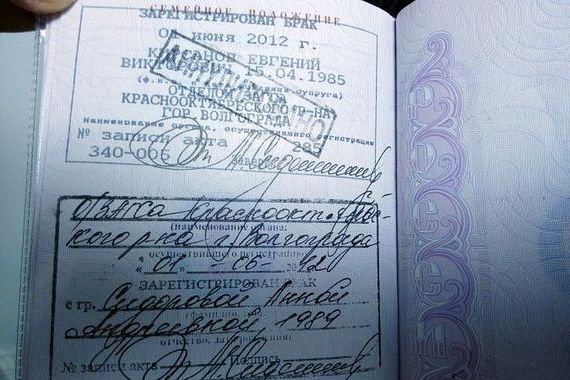 СЕМЕЙНОЕ ПОЛОЖЕНИЕ
ЗАРЕГИСТРИРОВАН БРАК
01 июня 2012 г.
ЕВГЕНИЙ
15.04.1985
ОТДЕЛОМ
КРАСНООКТЯБРЬСКОГО Р-НА
ГОР. ВОЛГОГРАДА
наименование органа, осуществившего регистрации
№ записи акта 285
340-006
О/ЗАГСа Краснооктябрьс-
кого р-на г. Волгограда
(наименование органа,
осуществившего регистрацию)
"01" - 06 - 2012
ЗАРЕГИСТРИРОВАН БРАК
с гр. Сидоровой Анной
Андреевной, 1989
отчество, дата рождения)
№ записи акта Подпись